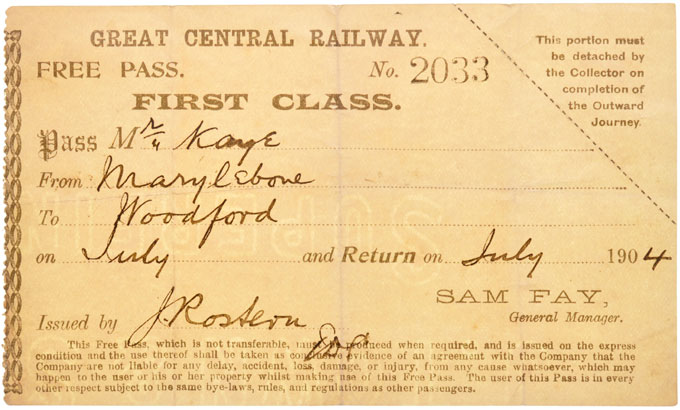 GREAT CENTRAL RAILWAY.
This portion must
be detached by
the Collector on
completion of
the Outward
Journey.
FREE PASS.
No. 2033
FIRST CLASS.
Pass Mr Kaye
From Marylebone
To Woodford
on July and Return on July 1904
SAM FAY,
General Manager.
Issued by J Rostern
This Free Pass, which is not transferable, must be produced when required, and is issued on the express
condition and the use thereof shall be taken as conclusive evidence of an agreement with the Company that the
Company are not liable for any delay, accident, loss, damage, or injury, from any cause whatsoever, which may
happen to the user or his or her property whilst making use of this Free Pass. The user of this Pass is in every
other respect subject to the same bye-laws, rules, and regulations as other passengers.